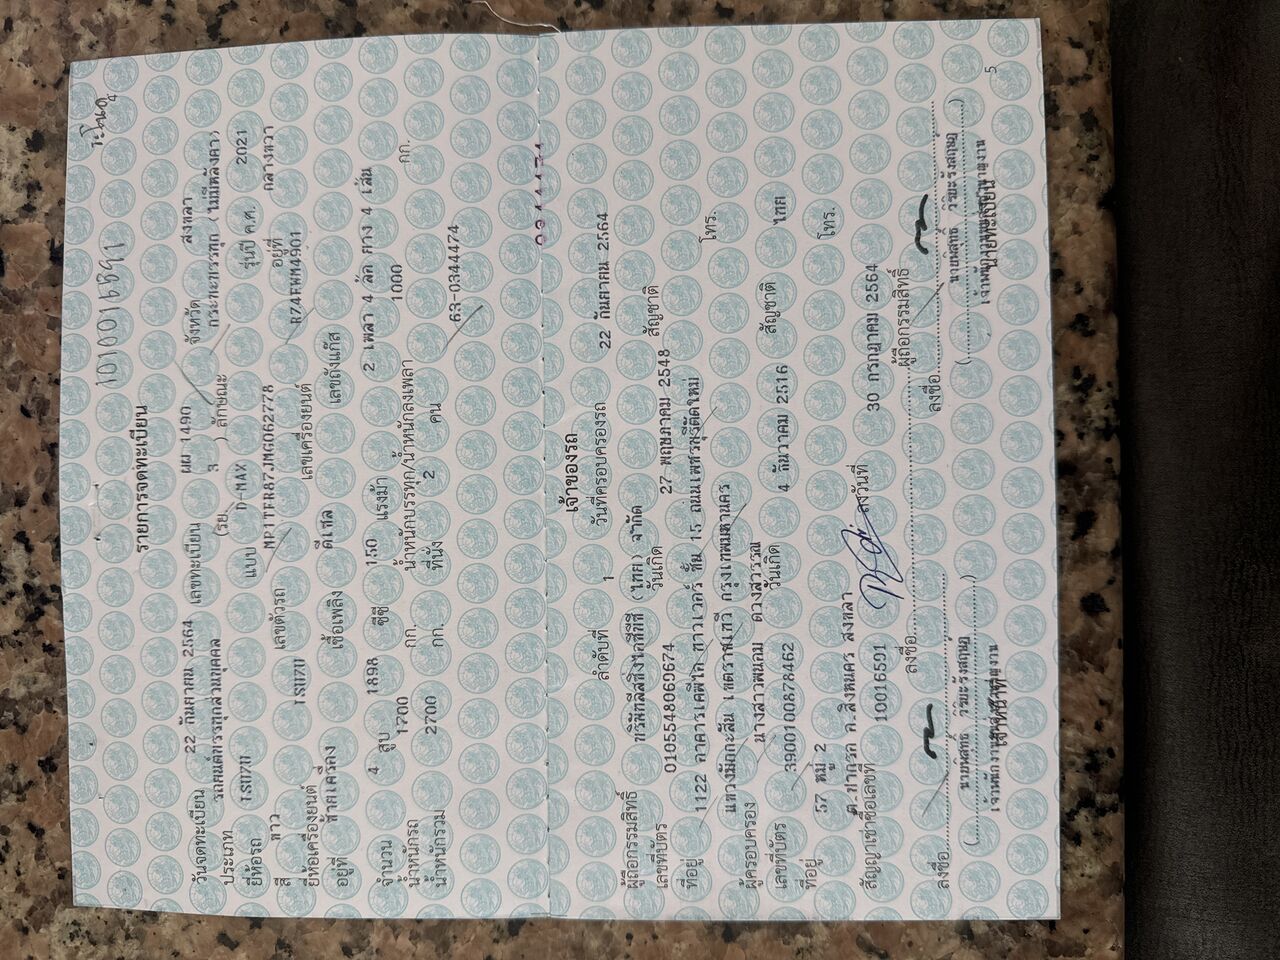 10100165891
ระโนด
4
รายการจดทะเบียน
วันจดทะเบียน 22 กันยายน 2564 เลขทะเบียน ผผ 1490 จังหวัด สงขลา
ประเภท รถยนต์บรรทุกส่วนบุคคล (รย. 3 ) ลักษณะ กระบะบรรทุก (ไม่มีหลังคา)
ยี่ห้อรถ ISUZU แบบ D-MAX รุ่นปี ค.ศ. 2021
สี ขาว เลขตัวรถ MP1TFR87JMG062778 อยู่ที่ กลางขวา
ยี่ห้อเครื่องยนต์ ISUZU เลขเครื่องยนต์ RZ4FWM4901
อยู่ที่ ซ้ายเครื่อง เชื้อเพลิง ดีเซล เลขถังแก๊ส
จำนวน 4 สูบ 1898 ซีซี 150 แรงม้า 2 เพลา 4 ล้อ ยาง 4 เส้น
น้ำหนักรถ 1700 กก. น้ำหนักบรรทุก/น้ำหนักลงเพลา 1000 กก.
น้ำหนักรวม 2700 กก. ที่นั่ง 2 คน
63-0344474
เจ้าของรถ
ลำดับที่ 1 วันที่ครอบครองรถ 22 กันยายน 2564
ผู้ถือกรรมสิทธิ์ (ไทย) จำกัด
เลขที่บัตร 0105548069674 วันเกิด 27 พฤษภาคม 2548 สัญชาติ
ที่อยู่ 1122 อาคารเคพีไอ ทาวเวอร์ ชั้น 15 ถนนเพชรบุรีตัดใหม่ โทร.
แขวงมักกะสัน เขตราชเทวี กรุงเทพมหานคร
ผู้ครอบครอง นางสาวพนอม ดวงสุวรรณ
เลขที่บัตร 3900100878462 วันเกิด 4 ธันวาคม 2516 สัญชาติ ไทย
ที่อยู่ 57 หมู่ 2 โทร.
ต.ชากรด อ.สิงหนคร สงขลา
สัญญาเช่าซื้อเลขที่ 10016591 ลงวันที่ 30 กรกฎาคม 2564
ลงชื่อ ผู้ถือกรรมสิทธิ์
ลงชื่อ ลงชื่อ
เจ้าหน้าที่ นายทะเบียน
5